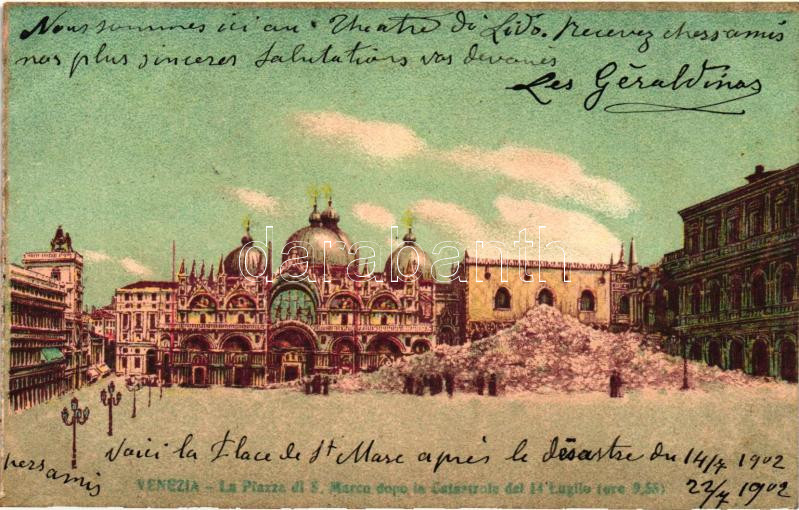 Nous sommes ici au Theatre di Lido. Recevez chers amis
nos plus sinceres Salutations vos devoués
Les Géraldinos
darabanth
Voici la Place de St Marc après le désastre du 14/7 1902
chers amis
22/7 1902
VENEZIA - La Piazza di S. Marco dopo la Catastrofe del 14 Luglio (ore 9,55)